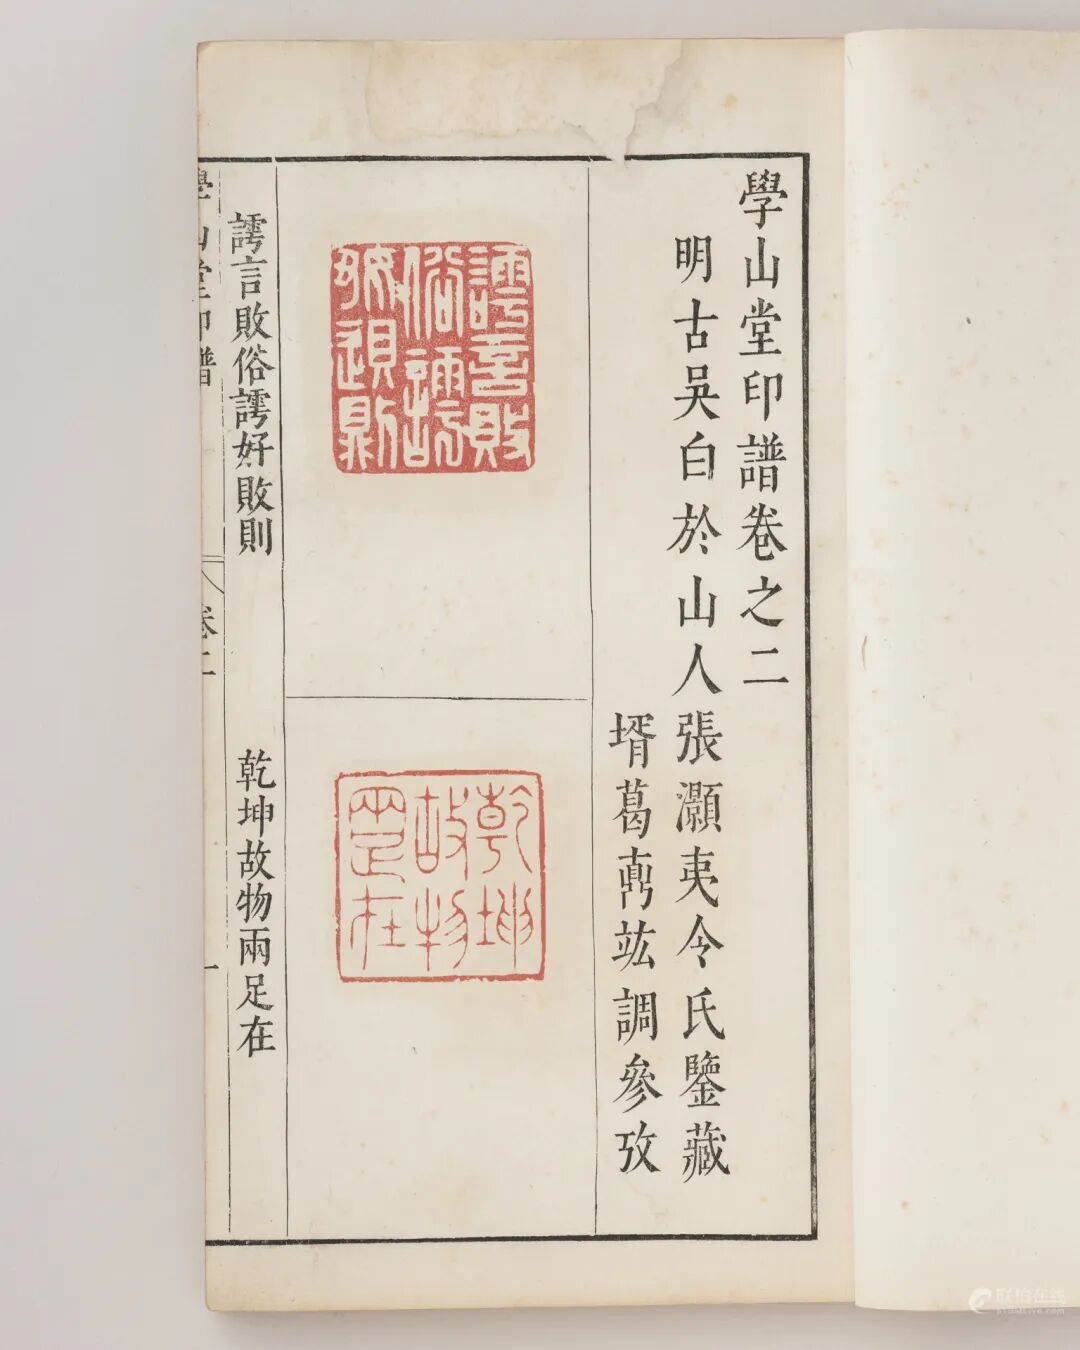 學山堂印譜卷之二
明古吳白於山人張灝夷令氏鑒藏
壻葛鼒竑調參攷
謣言敗俗謣好敗則
乾坤故物兩足在
學山堂印譜
卷二
一
联拍在线